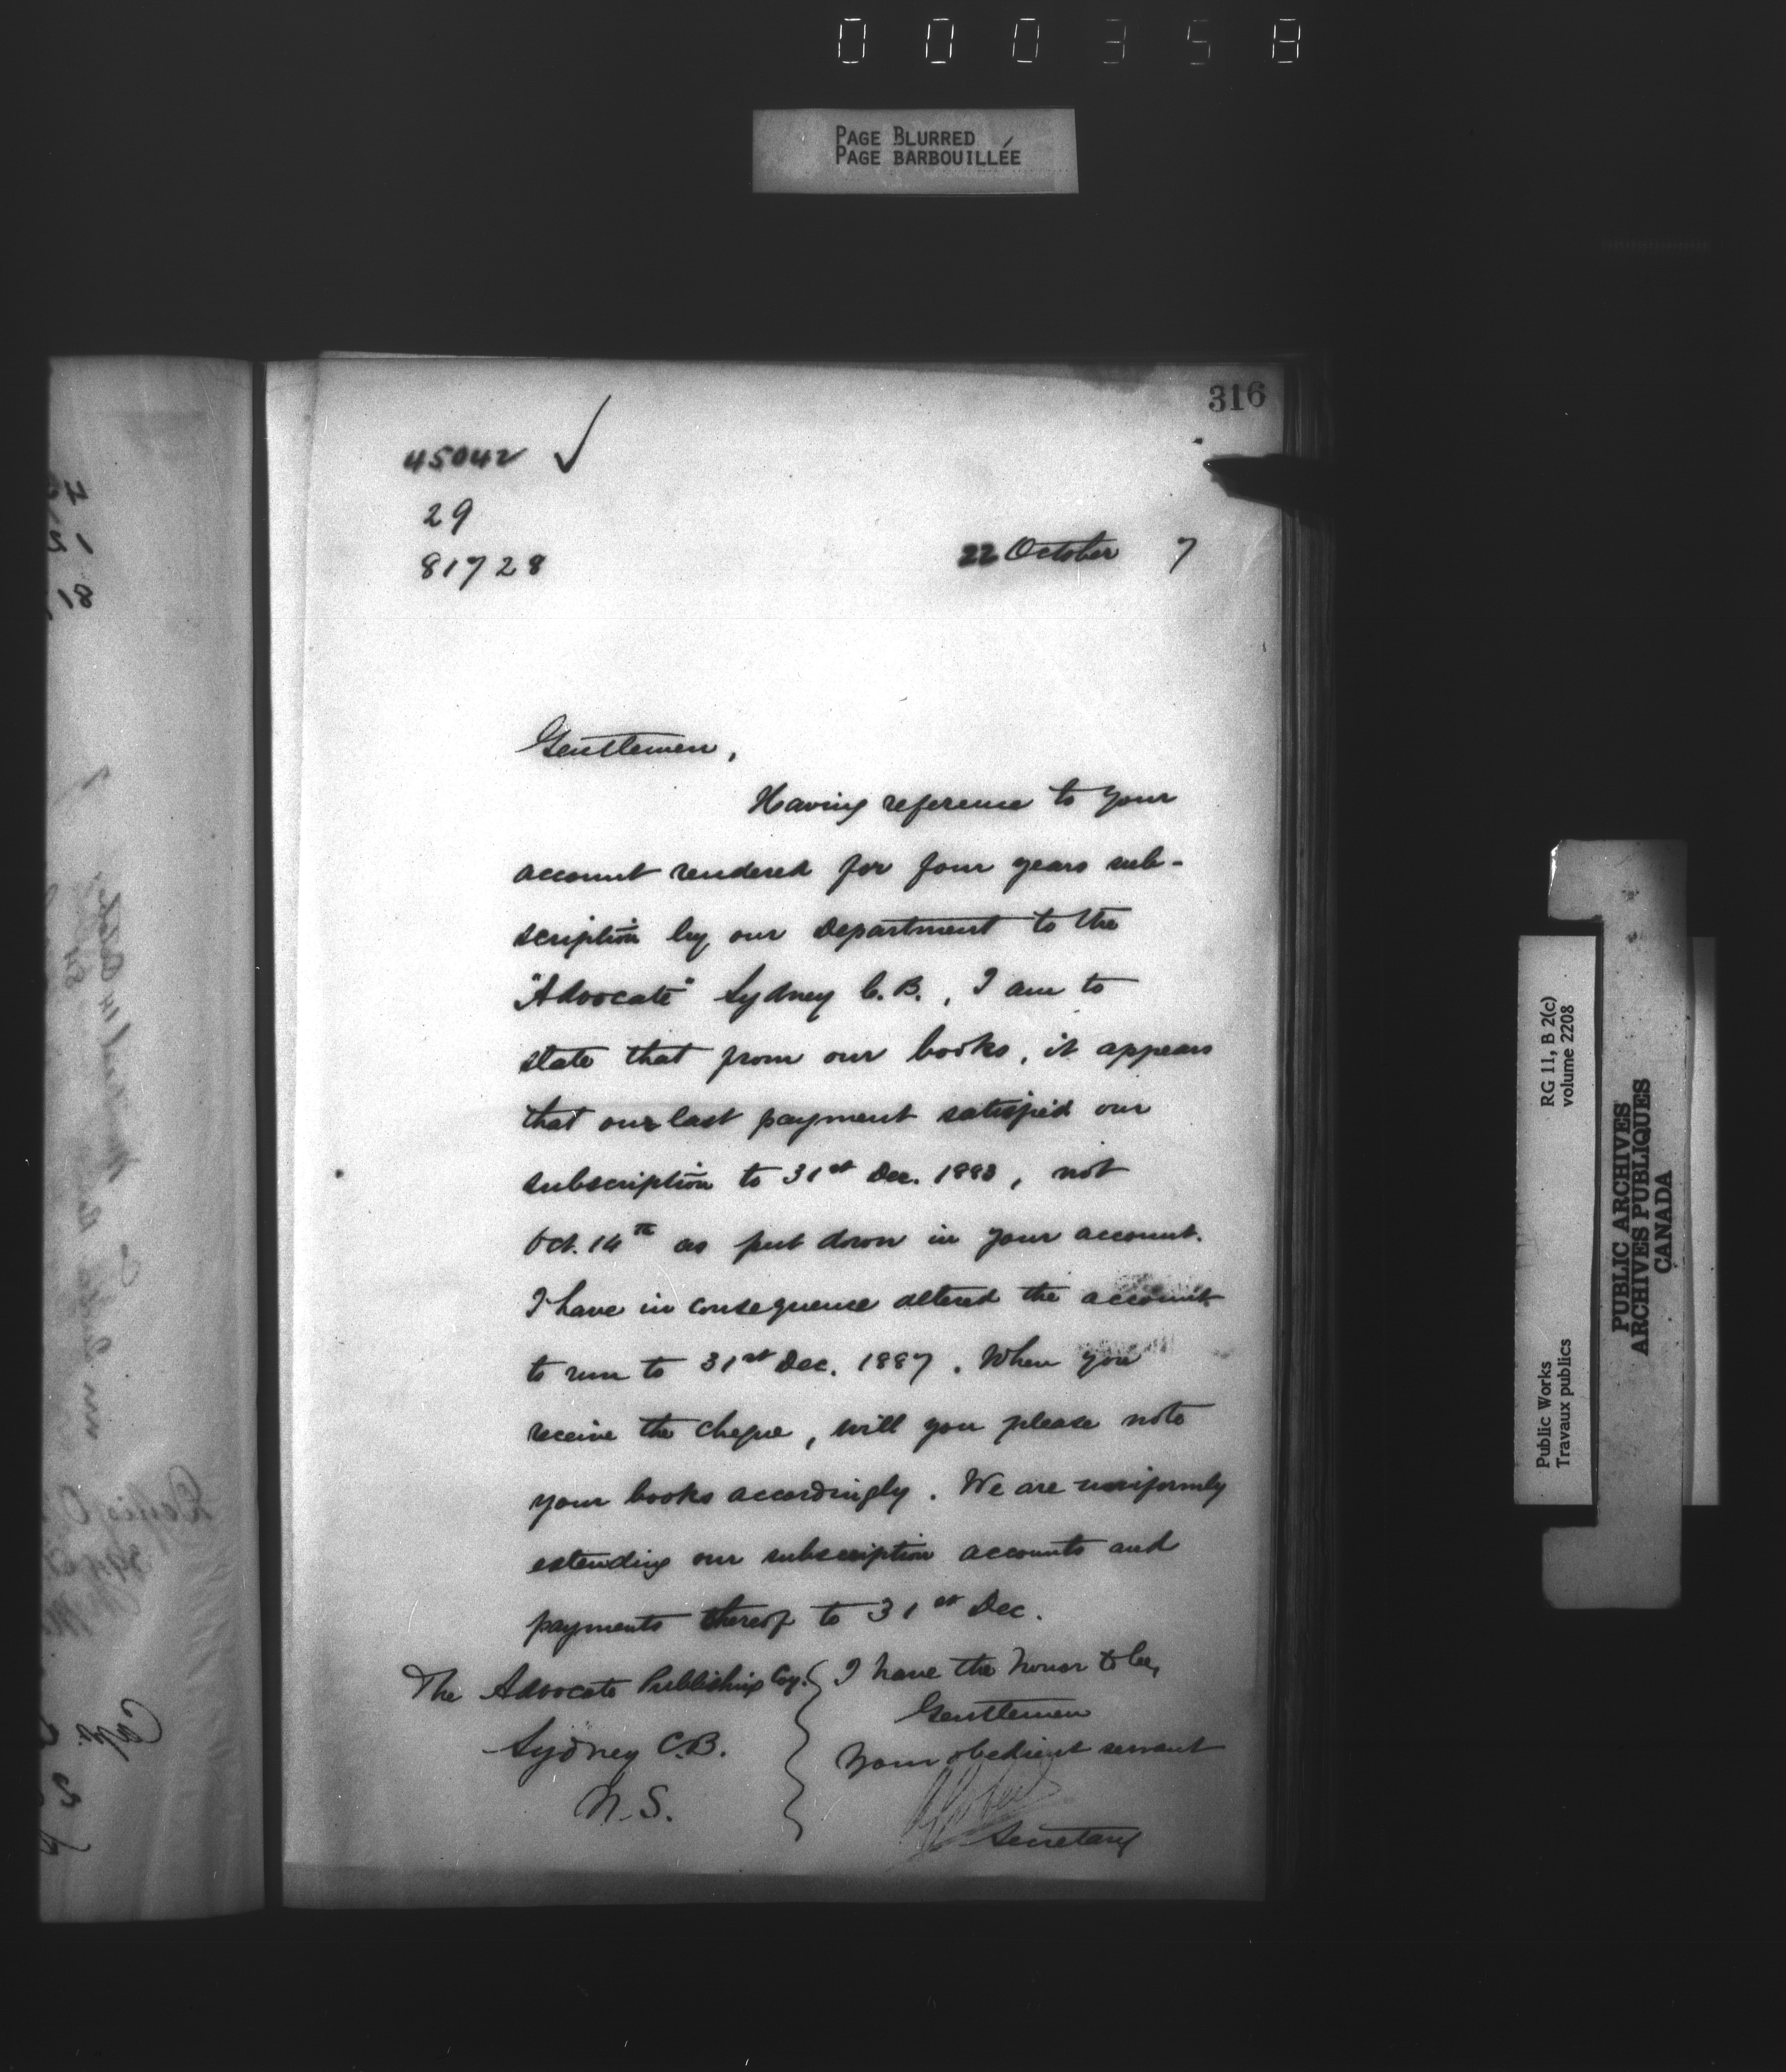 000358
PAGE BLURRED
PAGE BARBOUILLÉE
316
45042 ✓
29
81728
22 October 7
Gentlemen,
Having reference to your
account rendered for four years sub-
scription by our Department to the
"Advocate" Sydney C.B., I am to
state that from our books, it appears
that our last payment satisfied our
subscription to 31st Dec. 1883, not
Oct. 14th as put down in your account.
I have in consequence altered the account
to run to 31st Dec. 1887. When you
receive the cheque, will you please note
your books accordingly. We are uniformly
extending our subscription accounts and
payments thereof to 31st Dec.
The Advocate Publishing Coy.
Sydney C.B.
N.S.
I have the honor to be,
Gentlemen
Your obedient servant
Secretary
RG 11, B 2(c)
volume 2208
Public Works
Travaux publics
PUBLIC ARCHIVES
ARCHIVES PUBLIQUES
CANADA